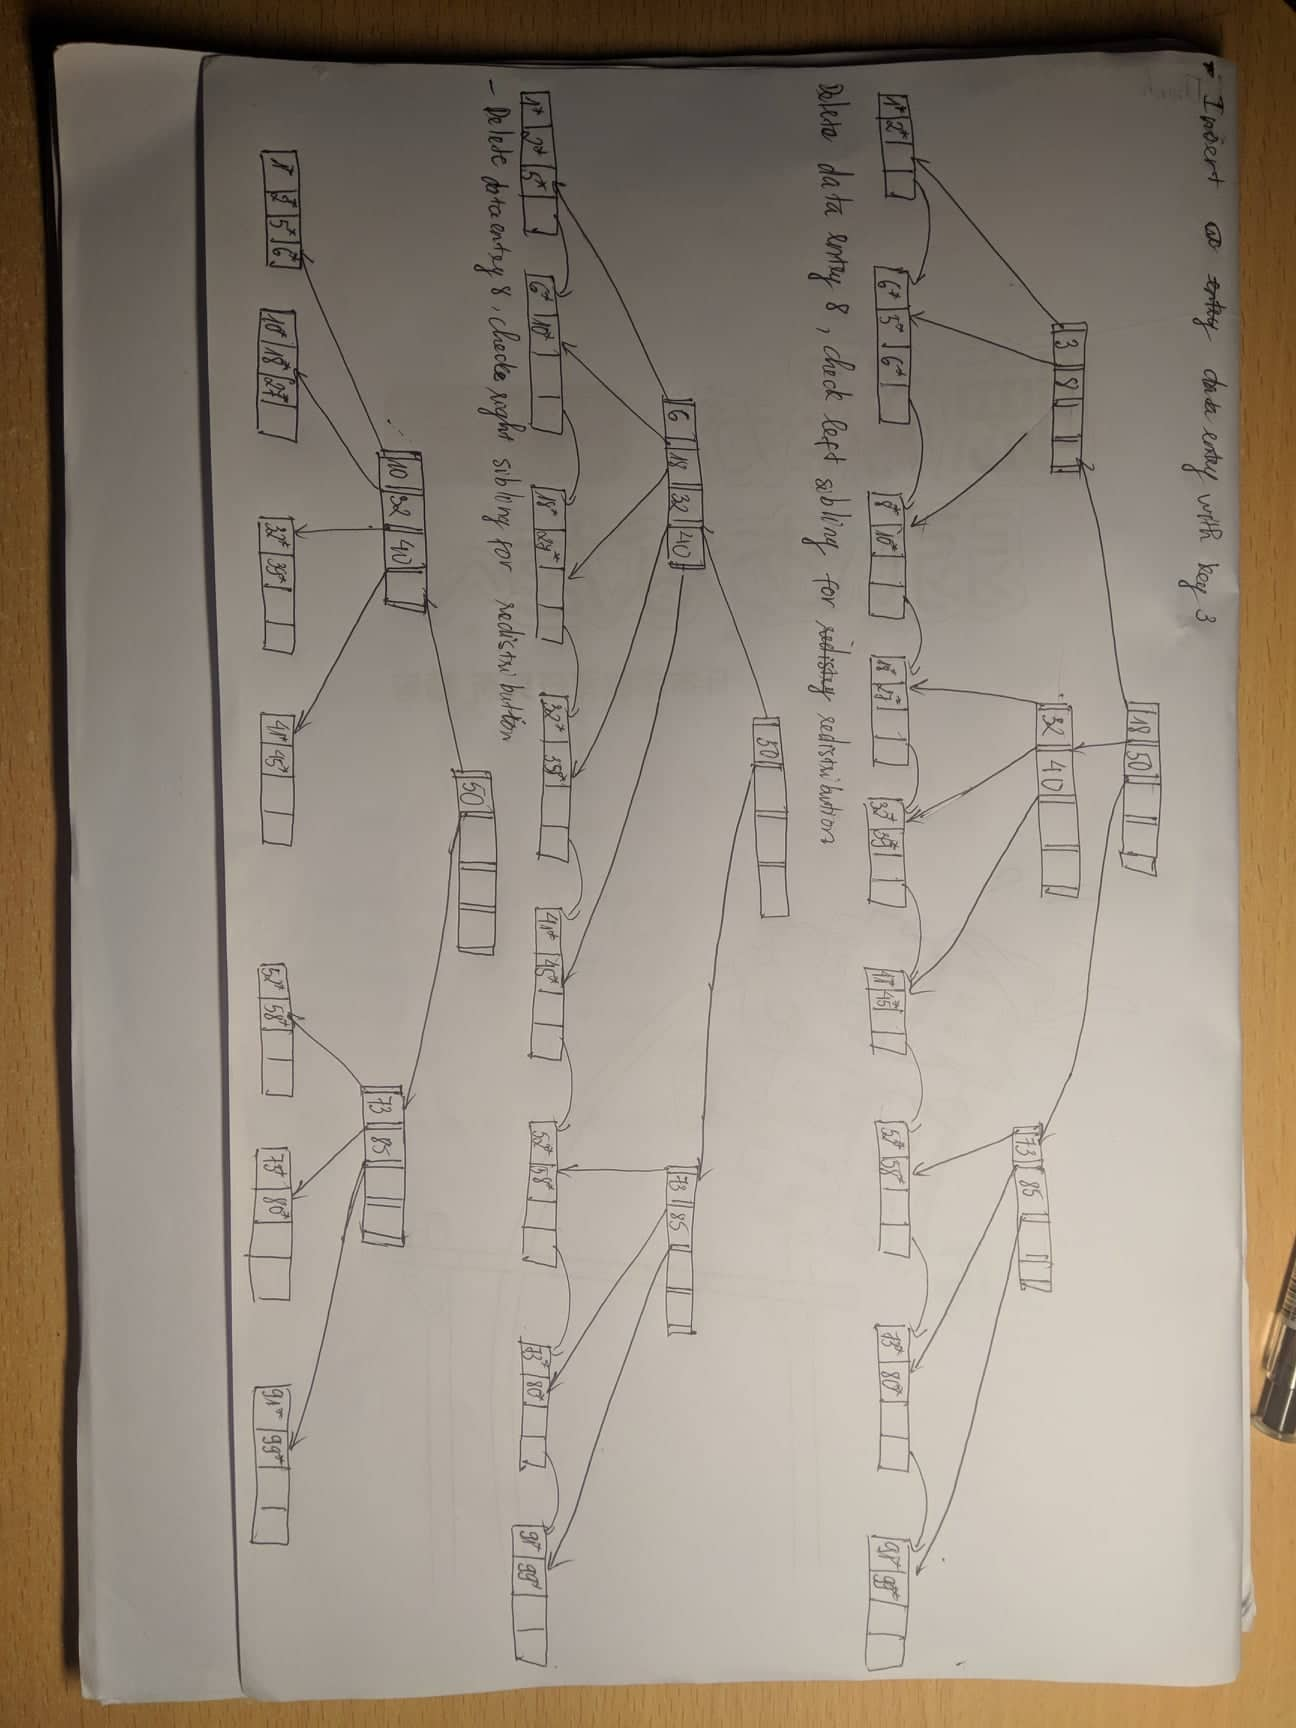 Insert an entry data entry with key 3
18 50
3 8
32 40
73 85
1* 2*
6* 5* 6*
8* 10*
18* 27*
32* 39*
41* 45*
52* 58*
73* 80*
91* 99*
Delete data entry 8, check left sibling for redistry redistribution
50
6 18 32 40
73 85
1* 2* 5*
6* 10*
18* 27*
32* 39*
41* 45*
52* 58*
73* 80*
91* 99*
- Delete data entry 8, checke right sibling for redistribution
50
10 32 40
73 85
1* 2* 5* 6*
10* 18* 27*
32* 39*
41* 45*
52* 58*
73* 80*
91* 99*